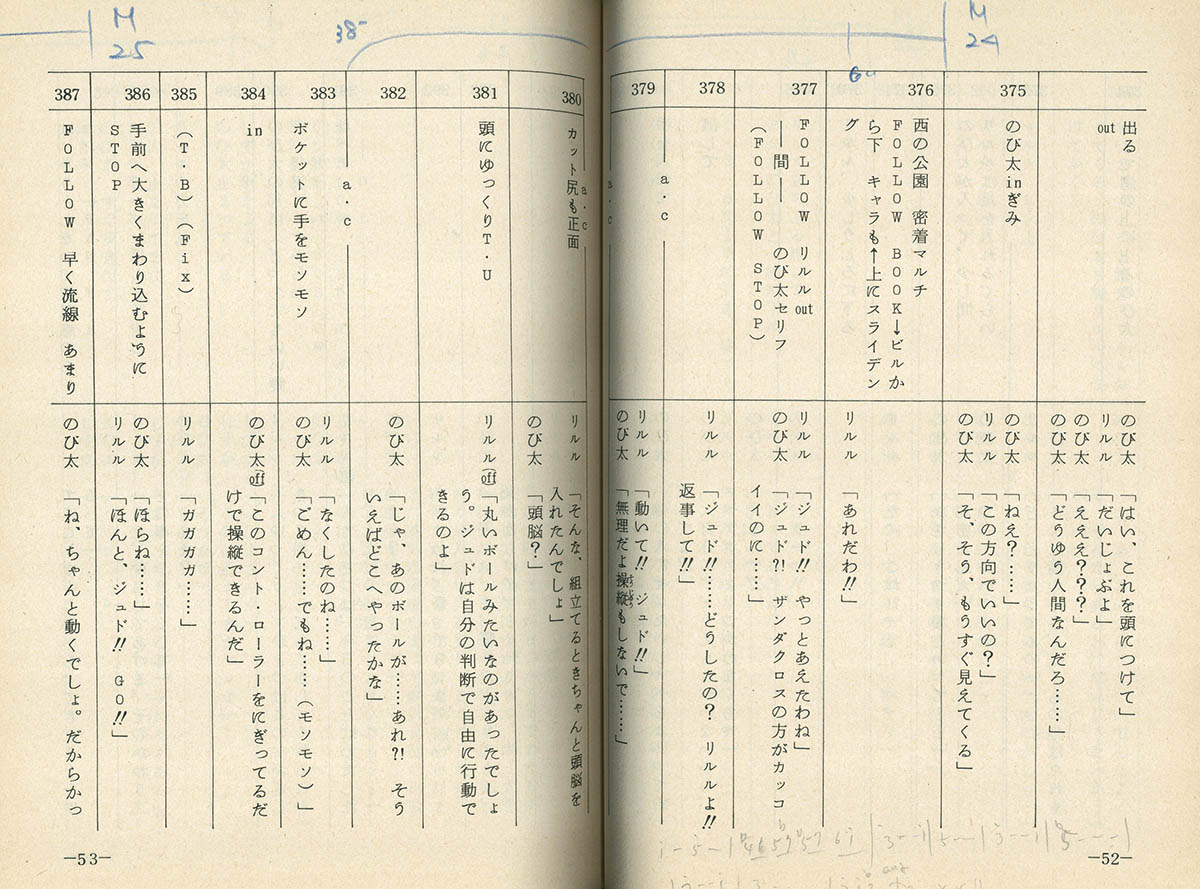 M
24
出る
out
のび太　「はい、これを頭につけて」
リルル　「だいじょぶよ」
のび太　「えええ？？？」
のび太　「どうゆう人間なんだろ……」
375
のび太inぎみ
のび太　「ねえ？……」
リルル　「この方向でいいの？」
のび太　「そ、そう、もうすぐ見えてくる」
376
西の公園　密着マルチ
ＦＯＬＬＯＷ　ＢＯＯＫ↓ビルか
ら下　キャラも↑上にスライデン
グ
リルル　「あれだわ!!」
377
ＦＯＬＬＯＷ　リルルout
――間――　のび太セリフ
（ＦＯＬＬＯＷ　ＳＴＯＰ）
リルル　「ジュド!!　やっとあえたわね」
のび太　「ジュド?!　ザンダクロスの方がカッコ
イイのに……」
378
リルル　「ジュド!!……どうしたの？　リルルよ!!
返事して!!」
379
a・c
リルル　「動いて!!　ジュド!!」
のび太　「無理だよ操縦もしないで……」
380
a・c
カット尻も正面
リルル　「そんな、組立てるときちゃんと頭脳を
入れたんでしょ」
のび太　「頭脳？」
381
頭にゆっくりＴ・Ｕ
リルル(off　「丸いボールみたいなのがあったでしょ
う。ジュドは自分の判断で自由に行動で
きるのよ」
382
のび太　「じゃ、あのボールが……あれ?!　そう
いえばどこへやったかな」
383
a・c
ポケットに手をモソモソ
リルル　「なくしたのね……」
のび太　「ごめん……でもね……（モソモソ）」
384
in
のび太(off　「このコント・ローラーをにぎってるだ
けで操縦できるんだ」
385
（Ｔ・Ｂ）（Ｆix）
リルル　「ガガガガ……」
386
手前へ大きくまわり込むように
ＳＴＯＰ
のび太　「ほらね……」
リルル　「ほんと、ジュド!!　ＧＯ!!」
387
ＦＯＬＬＯＷ　早く流線　あまり
のび太　「ね、ちゃんと動くでしょ。だからかっ
M
25
38
―52―
―53―